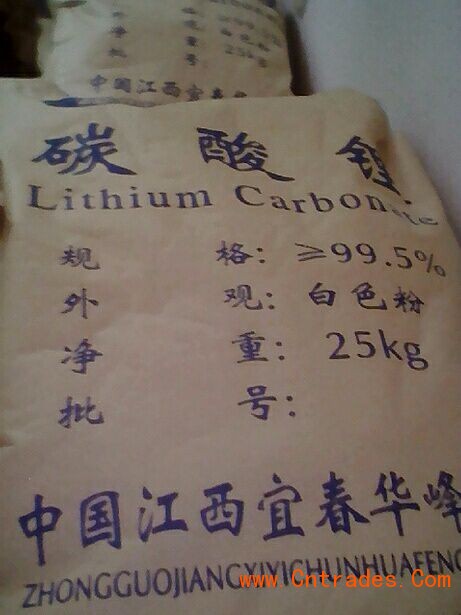 格:
25kg
中国江西宜春华
碳酸锂
Lithium Carbonate
规格: ≥99.5%
外观: 白色粉
净重: 25kg
批号:
中国江西宜春华峰
ZHONGGUOJIANGXIYICHUNHUAFENG
www.Cntrades.Com